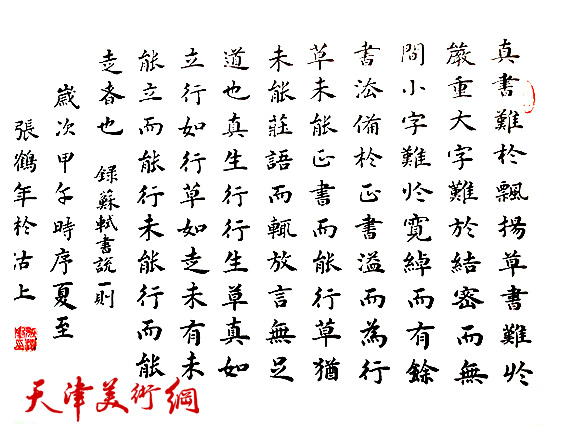 真書難於飄揚草書難於
嚴重大字難於結密而無
間小字難於寬綽而有餘
書法備於正書溢而為行
草未能正書而能行草猶
未能莊語而輒放言無足
道也真生行行生草真如
立行如行草如走未有未
能立而能行未能行而能
走者也 録蘇軾書說一則
歲次甲午時序夏至
張鶴年於沽上
天津美術網